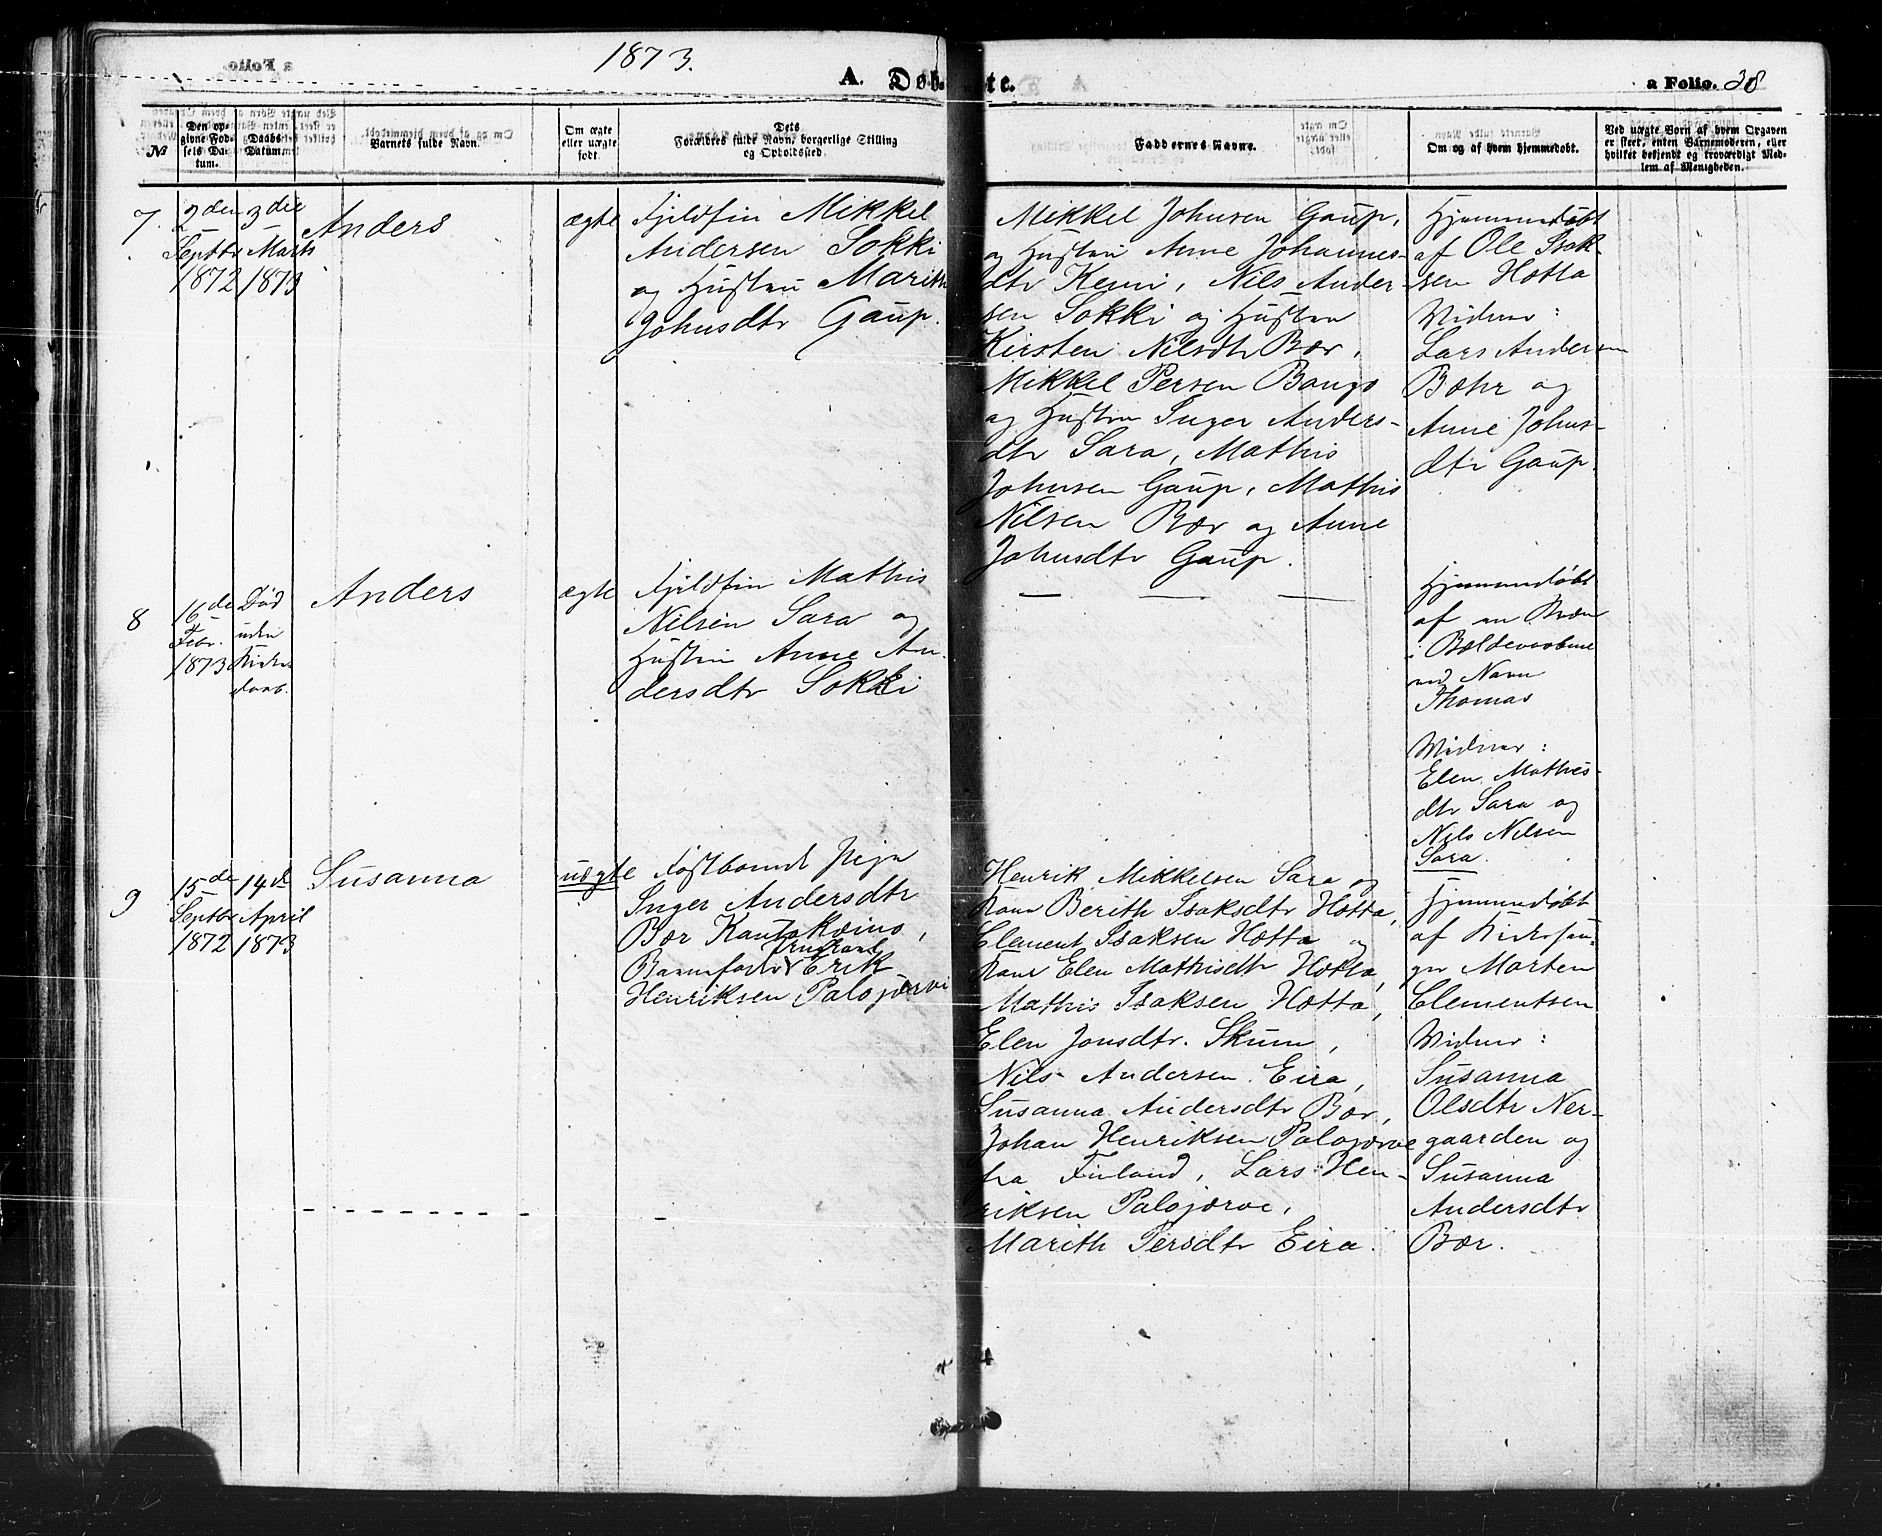 1873.
A. Døbte.
a Folio. 38
№
Den opgivne Fødsels Datum.
Daabs Datum.
Barnets fulde Navn.
Om ægte eller uægte født.
Dets Forældres fulde Navn, borgerlige Stilling og Opholdssted.
Faddernes Navne.
Om og af hvem hjemmedøbt.
Ved uægte Børn af hvem Opgaven er skeet, enten Barnemoderen, eller hvilket bekjendt og troværdigt Medlem af Menigheden.
7.
2den
Septbr
1872
3die
Marts
1873
Anders
ægte
Fjeldfin Mikkel
Andersen Sokki
og Hustru Marith
Johnsdtr Gaup.
Mikkel Johnsen Gaup,
og Hustru Anne Johannes-
dtr Kemi, Nils Ander-
sen Sokki og Hustru
Kirsten Nilsdtr Bær,
Mikkel Persen Bongo
og Hustru Inger Anders-
dtr Sara, Mathis
Johnsen Gaup, Mathis
Nilsen Bær og Anne
Johnsdtr Gaup.
Hjemmedøbt
af Ole Isak-
sen Hætta
Vidner:
Lars Andersen
Bæhr og
Anne Johns-
dtr Gaup.
8
16de
Febr.
1873
Død
uden
Kirke
daab.
Anders
ægte
Fjeldfin Mathis
Nilsen Sara og
Hustru Anne An-
dersdtr Sokki
— — —
Hjemmedøbt
af en
i
ved Navn
Thomas
Vidner:
Elen Mathis-
dtr Sara og
Nils Nilsen
Sara.
9
15de
Septbr
1872
14de
April
1873
Susanna
uægte
Fastboende Pige
Inger Andersdtr
Bær Kautokeino,
Barnefader Ungkarl Erik
Henriksen Palojærvi
Henrik Mikkelsen Sara og
Kone Berith Isaksdtr Hætta,
Clement Isaksen Hætta og
Kone Elen Mathisdtr Hætta,
Mathis Isaksen Hætta,
Elen Jonsdtr. Skum,
Nils Andersen Eira,
Susanna Andersdtr Bær,
Johan Henriksen Palojærve
fra Finland, Lars Hen-
riksen Palojærve,
Marith Persdtr Eira.
Hjemmedøbt
af Kirkesan-
ger Morten
Clementsen
Vidner:
Susanna
Olsdtr Ner-
gaarden og
Susanna
Andersdtr
Bær.